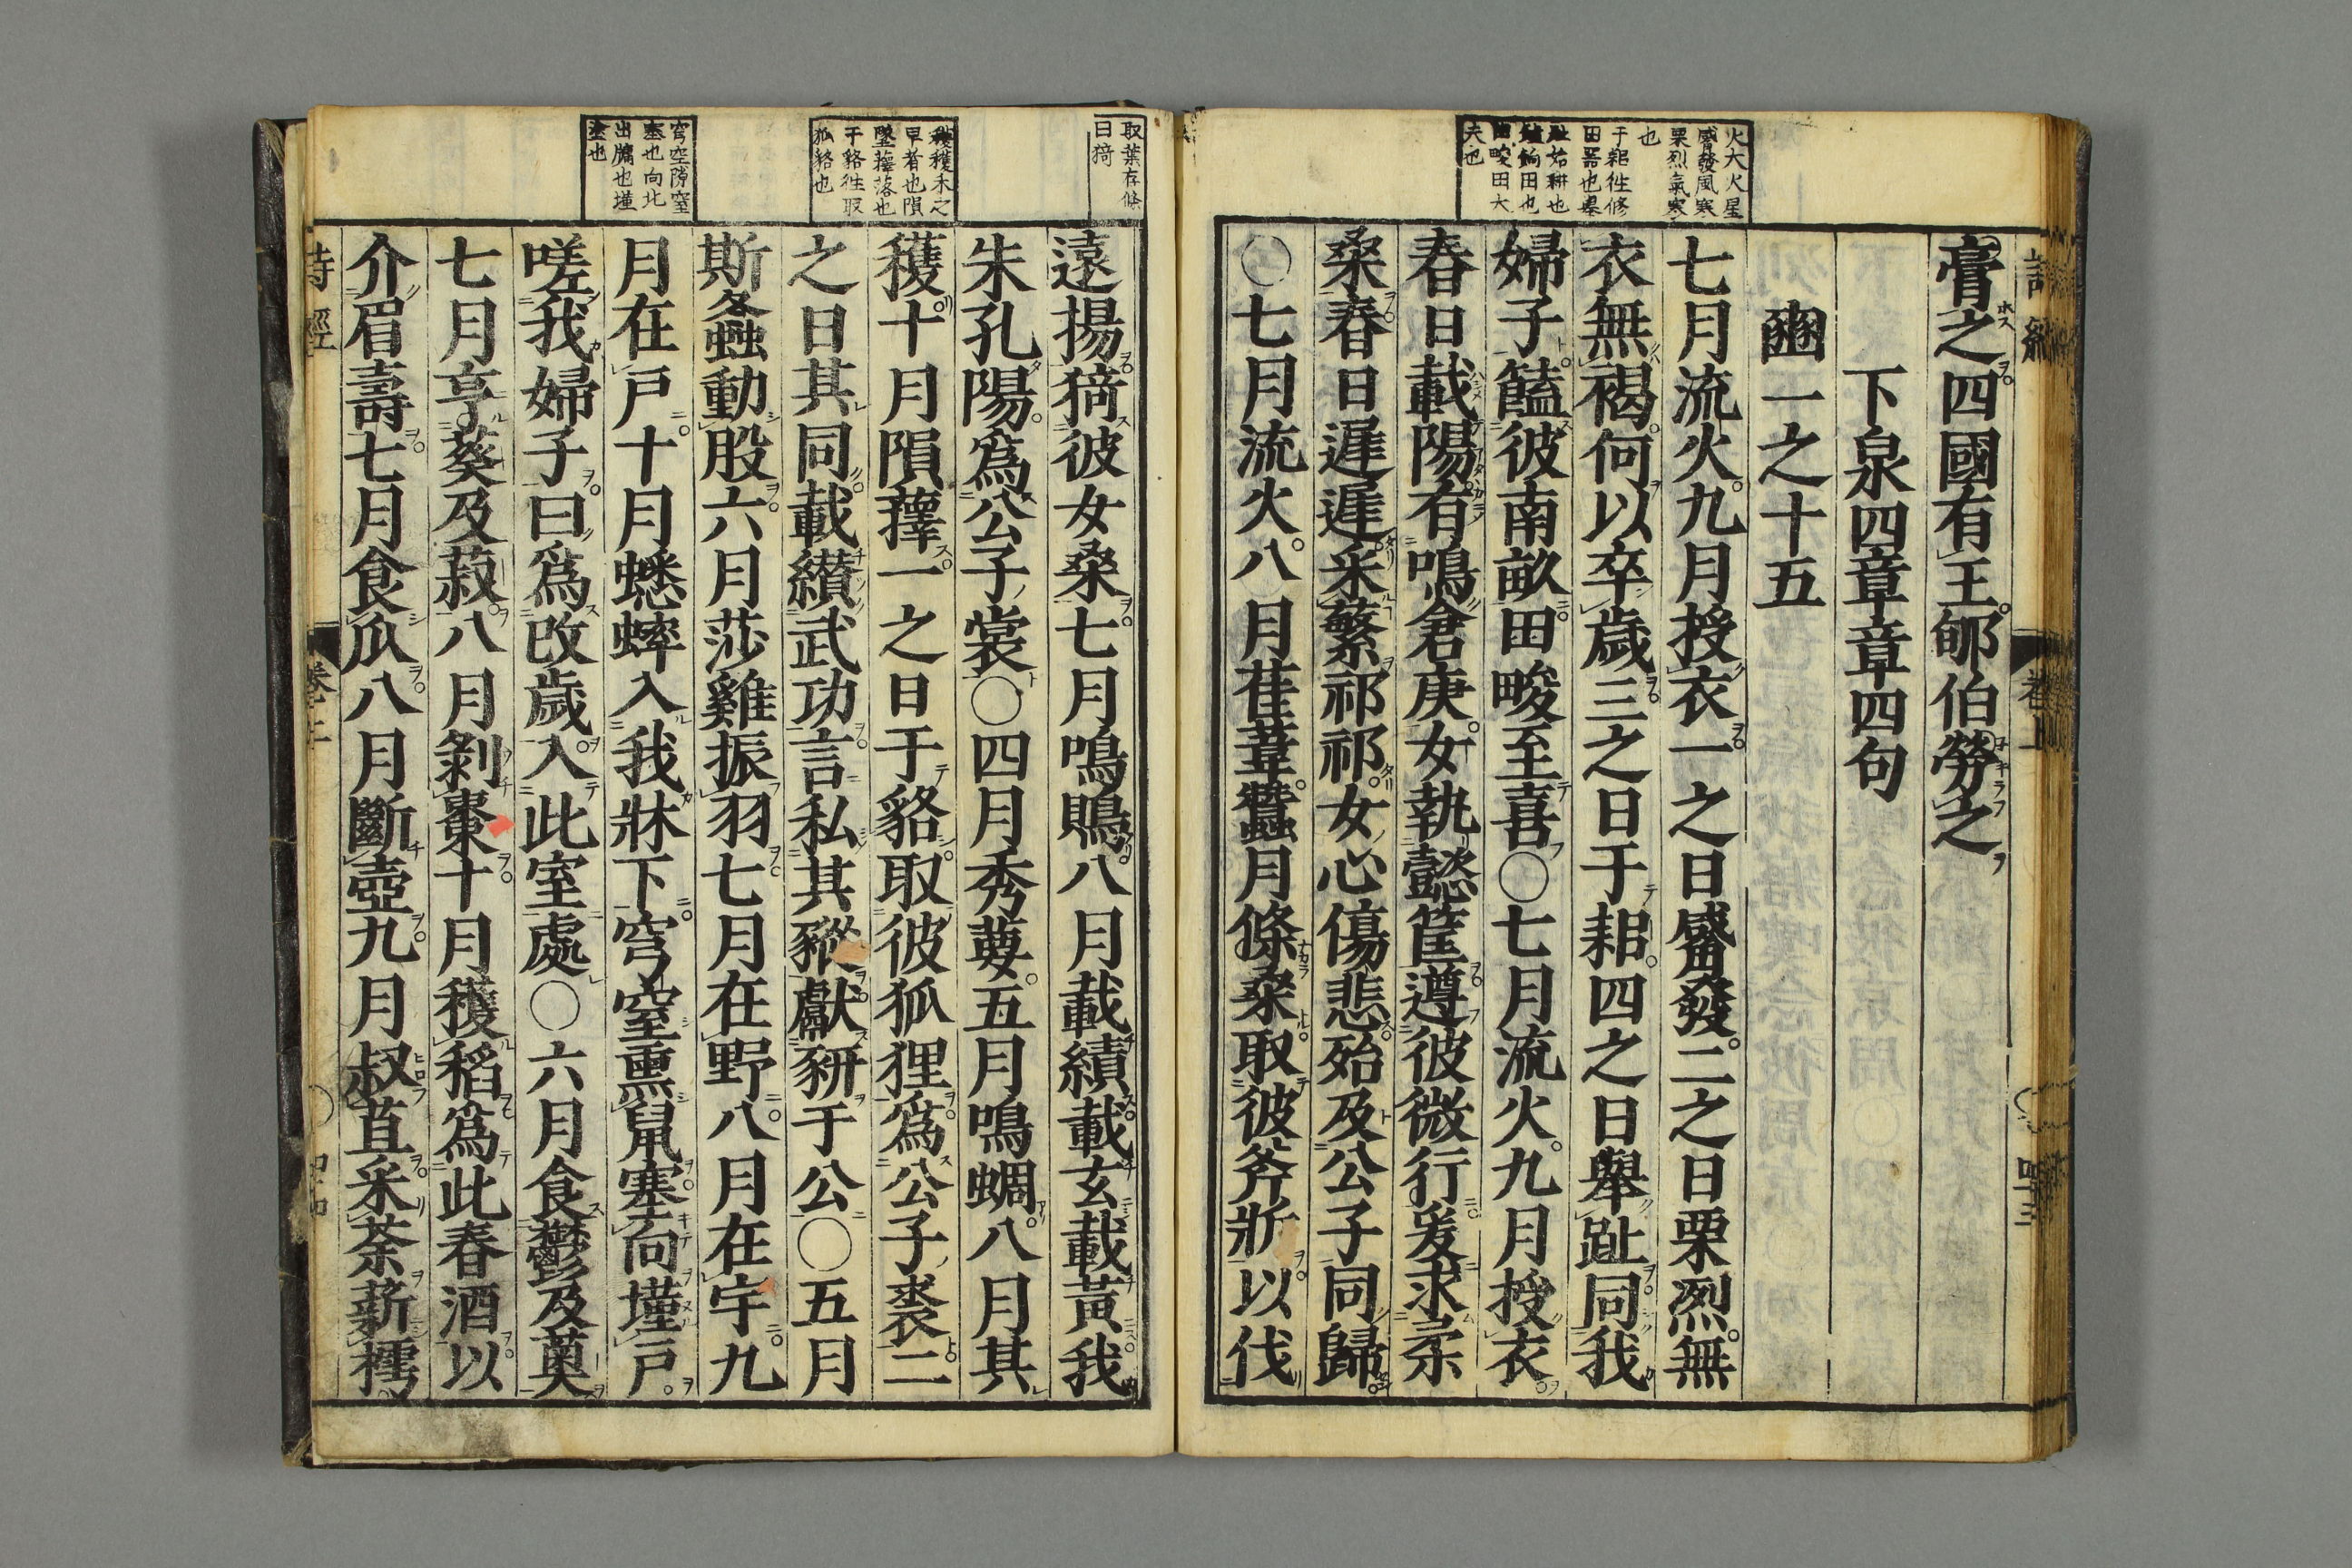 火大火星
觱發風寒
栗烈氣寒
也
于耜徃修
田器也舉
趾始耕也
饁餉田也
田畯田大
夫也
膏之四國有王郇伯勞之
下泉四章章四句
豳一之十五
七月流火九月授衣一之日觱發二之日栗烈無
衣無褐何以卒歲三之日于耜四之日舉趾同我
婦子饁彼南畝田畯至喜○七月流火九月授衣
春日載陽有鳴倉庚女執懿筐遵彼微行爰求柔
桑春日遲遲采蘩祁祁女心傷悲殆及公子同歸
○七月流火八月萑葦蠶月條桑取彼斧斨以伐
取葉存條
曰猗
穫穫禾之
早者也隕
墜蘀落也
于貉徃取
狐貉也
穹空隙窒
塞也向北
出牖也墐
塗也
遠揚猗彼女桑七月鳴鵙八月載績載玄載黃我
朱孔陽爲公子裳○四月秀葽五月鳴蜩八月其
穫十月隕蘀一之日于貉取彼狐狸爲公子裘二
之日其同載纉武功言私其豵獻豜于公○五月
斯螽動股六月莎雞振羽七月在野八月在宇九
月在戸十月蟋蟀入我牀下穹窒熏鼠塞向墐戸
嗟我婦子曰爲改歲入此室處○六月食鬱及薁
七月亨葵及菽八月剝棗十月穫稻爲此春酒以
介眉壽七月食瓜八月斷壺九月叔苴采荼薪樗
詩經 卷上 四十四